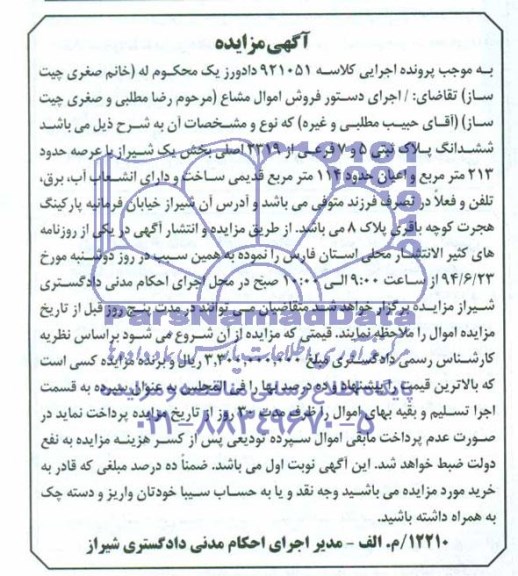 آگهی مزایده
به موجب پرونده اجرایی کلاسه ۹۲۱۰۵۱ دادورز یک محکوم له (خانم صغری چیت
ساز) تقاضای: / اجرای دستور فروش اموال مشاع (مرحوم رضا مطلبی و صغری چیت
ساز) (آقای حبیب مطلبی و غیره) که نوع و مشخصات آن به شرح ذیل می باشد
ششدانگ پلاک ثبتی ۵ و ۷ فرعی از ۳۳۱۹ اصلی بخش یک شیراز با عرصه حدود
۲۱۳ متر مربع و اعیان حدود ۱۱۴ متر مربع قدیمی ساخت و دارای انشعاب آب، برق،
تلفن و فعلاً در تصرف فرزند متوفی می باشد و آدرس آن شیراز خیابان فرمانیه پارکینگ
هجرت کوچه باقری پلاک ۸ می باشد. از طریق مزایده و انتشار آگهی در یکی از روزنامه
های کثیر الانتشار محلی استان فارس را نموده به همین سبب در روز دوشنبه مورخ
۹۴/۶/۲۳ از ساعت ۹:۰۰ الی ۱۰:۰۰ صبح در محل اجرای احکام مدنی دادگستری
شیراز مزایده برگزار خواهد شد متقاضیان می توانند در مدت پنج روز قبل از تاریخ
مزایده اموال را ملاحظه نمایند. قیمتی که مزایده از آن شروع می شود براساس نظریه
کارشناس رسمی دادگستری مبلغ ۳,۳۰۰,۰۰۰,۰۰۰ ریال و برنده مزایده کسی است
که بالاترین قیمت را پیشنهاد و ده درصد بها را فی المجلس به عنوان سپرده به قسمت
اجرا تسلیم و بقیه بهای اموال را ظرف مدت ۳۰ روز از تاریخ مزایده پرداخت نماید در
صورت عدم پرداخت مابقی اموال سپرده تودیعی پس از کسر هزینه مزایده به نفع
دولت ضبط خواهد شد. این آگهی نوبت اول می باشد. ضمناً ده درصد مبلغی که قادر به
خرید مورد مزایده می باشید وجه نقد و یا به حساب سیبا خودتان واریز و دسته چک
به همراه داشته باشید.
۱۲۲۱۰/م. الف - مدیر اجرای احکام مدنی دادگستری شیراز
ParsNamadData
پایگاه اطلاع رسانی مناقصه و مزایده
۰۲۱-۸۸۳۴۹۶۷۰-۵